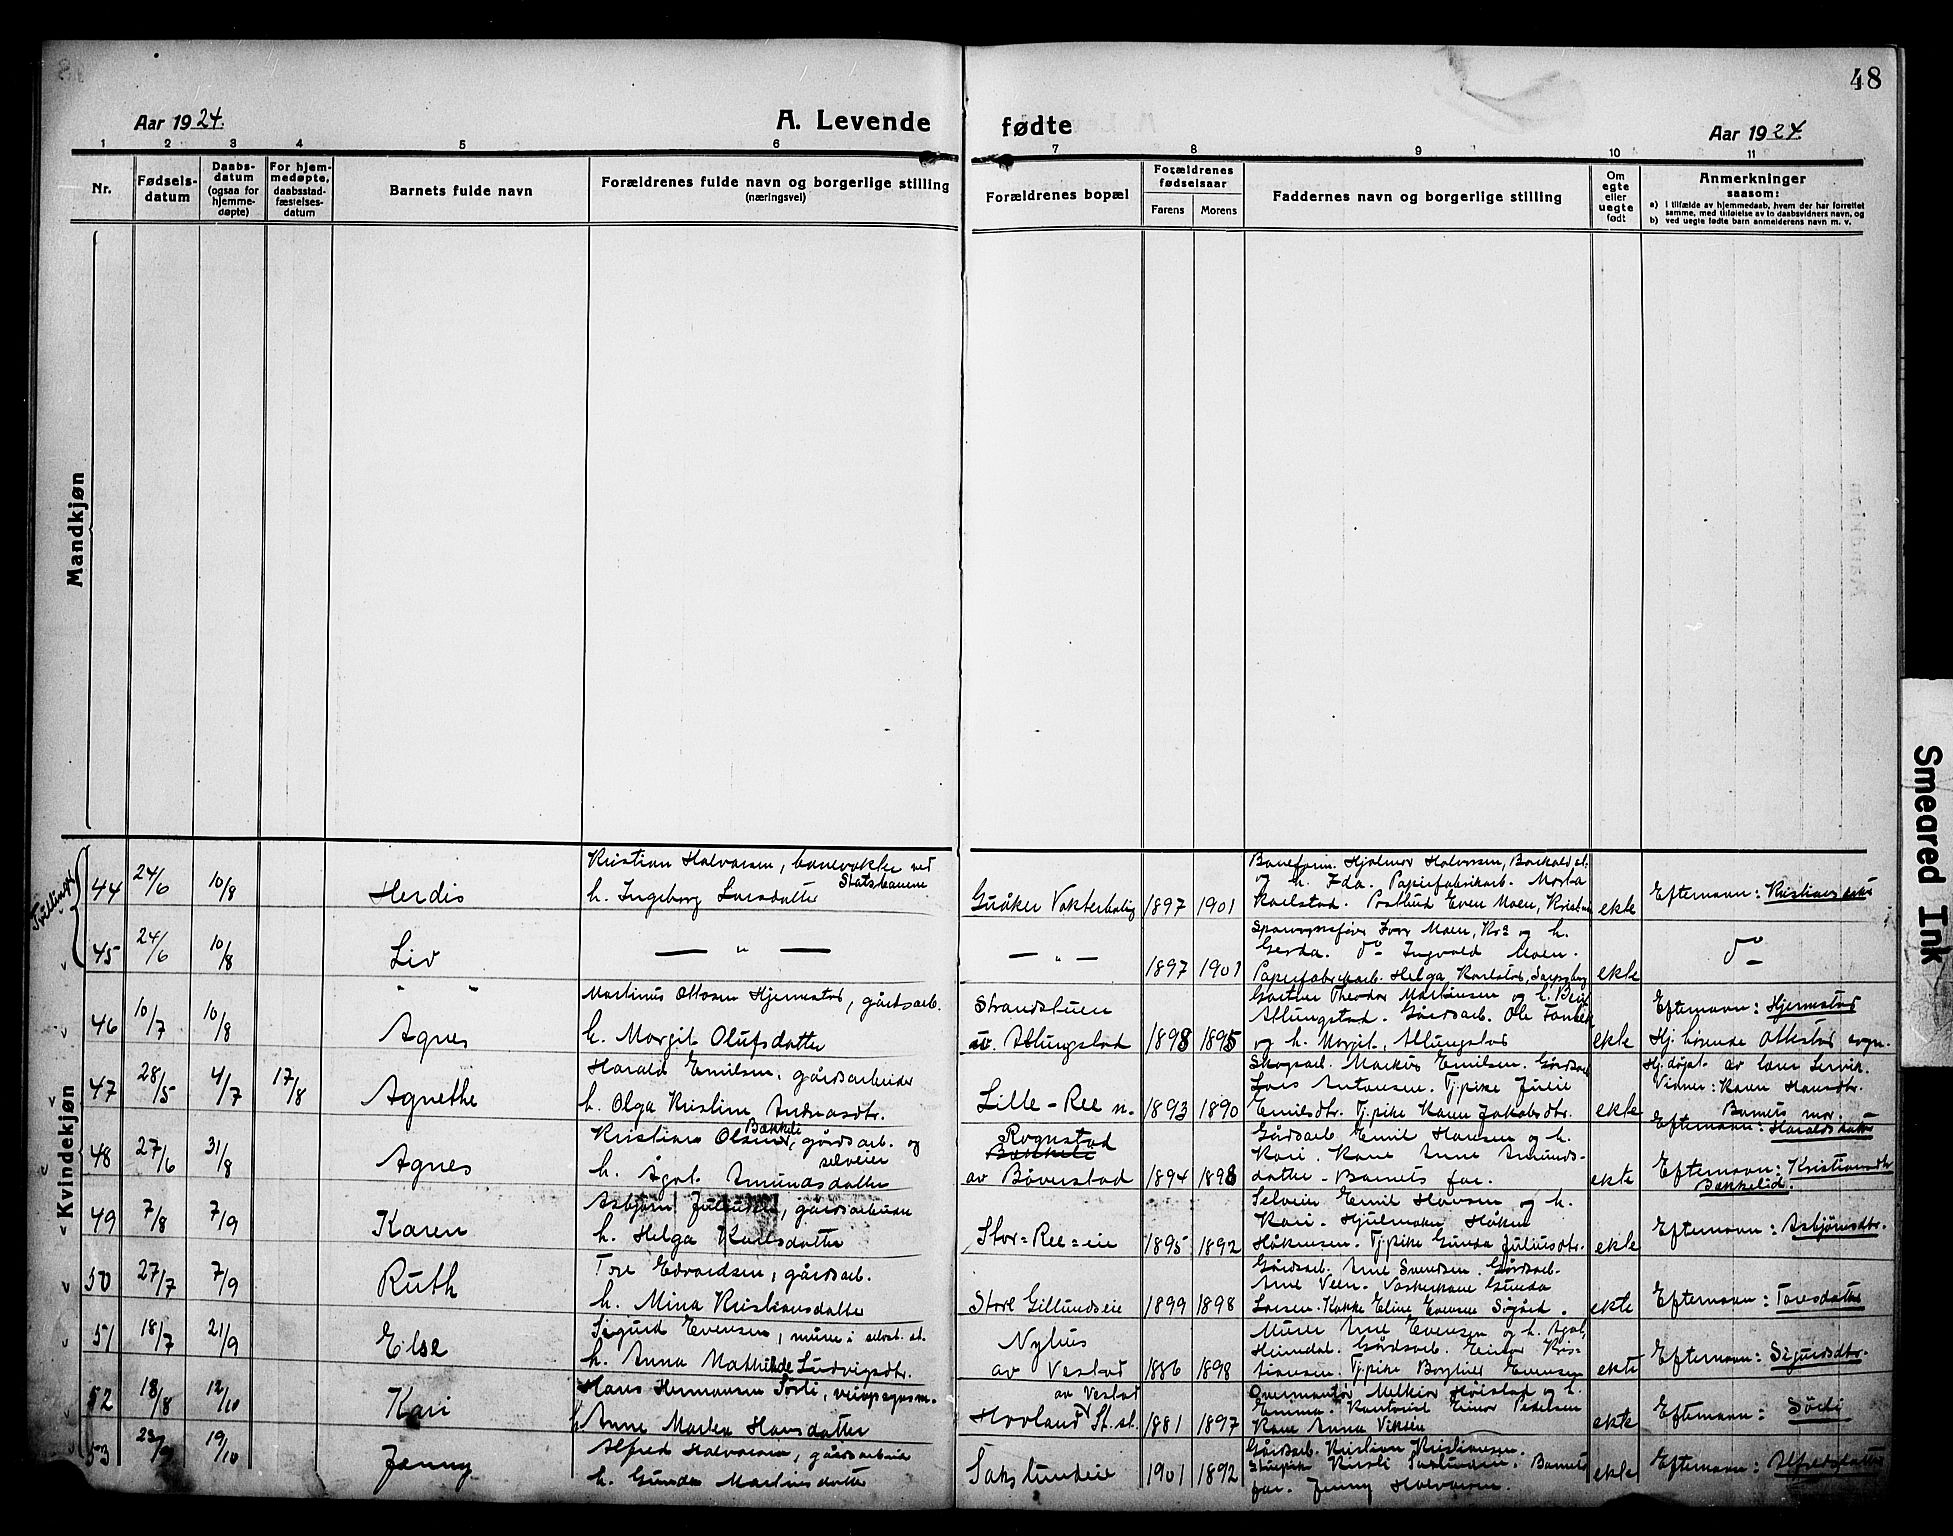 48
Aar 1924.
A. Levende
fødte
Aar 1924
1 2 3 4 5 6 7 8 9 10 11
Nr.
Fødsels-
datum
Daabs-
datum
(ogsaa for
hjemme-
døpte)
For hjem-
medøpte,
daabsstad-
fæstelses-
datum
Barnets fulde navn
Forældrenes fulde navn og borgerlige stilling
(næringsvei)
Forældrenes bopæl
Forældrenes
fødselsaar
Farens
Morens
Faddernes navn og borgerlige stilling
Om
egte
eller
uegte
født
Anmerkninger
saasom:
a) i tilfælde av hjemmedaab, hvem der har forrettet
samme, med tilføielse av to daabsvidners navn, og
b) ved uegte fødte barn anmelderens navn m. v.
Mandkjøn
Kvindekjøn
Tvillinger
44 24/6 10/8 Herdis
Kristian Halvorsen, banevokter ved
Statsbanene
h. Ingeborg Larsdatter
Gudker Vokterbolig 1897 1901
Baneform. Hjalmar Halvorsen,
og h. Ida. Papirfabrikarb. Marta
Karlstad. Postbud Even Moen,
ekte
Efternavn:
45 24/6 10/8 Liv
— " —
— " — 1897 1901
Ivar Moen, Kra og h.
Gerda. do Ingvald Moen.
Papirfabrikarb. Helga Karlstad, Sarpsborg
ekte
do
46 10/7 10/8 Agnes
Martinus Ottosen Hjermstad, gårdsarb.
h. Margit Olufsdatter
Strandstuen
u. Atlungstad 1898 1895
Gartner Theodor Martinsen og h.
Atlungstad. Gårdsarb. Ole
og h. Margit, Atlungstad
ekte
Efternavn: Hjermstad
Hj. hørende Ottestad sogn.
47 28/5 4/7 17/8 Agnethe
Harald Emilsen, gårdsarbeider
h. Olga Kristine Andreasdtr.
Lille-Ree n. 1893 1890
Skogsarb. Markus Emilsen. Gårdsarb.
Lars Antonsen. Tj.pike Julie
Emilsdtr. Tj.pike Karen Jakobsdtr.
ekte
Hj.døpt av lærer
Vidner: Karen Hansdtr.
Barnets mor.
Efternavn: Haraldsdatter
48 27/6 31/8 Agnes
Kristian Olsen Bækkeli, gårdsarb. og
selveier
h. Ågot Amundsdatter
Rognstad
Bækkeli
av Bøverstad 1894 1898
Gårdsarb Emil Hansen og h.
Kari. Kone Anne Amunds-
datter. Barnets far.
ekte
Efternavn: Kristiansdtr
Bækkelid.
49 7/8 7/9 Karen
Asbjørn
h. Helga Karlsdatter
Stor-Ree-eie 1895 1892
Selveier Emil Hansen og h.
Kari. Hjulmaker Håken
Håkensen. Tj.pike Gunda Juliusdtr.
ekte
Efternavn: Asbjørnsdtr.
50 27/7 7/9 Ruth
Tore Edvardsen, gårdsarb.
h. Mina Kristiansdatter
Store Gillundseie 1899 1898
Gårdsarb. Arne Svendsen. Gårdsarb.
Arne Veen. Vaskerkone Gunda
Larsen. Kokke Eline Evensen
ekte
Efternavn: Toresdatter
51 18/7 21/9 Else
Sigurd Evensen, murer i
h. Anna Mathilde Ludvigsdtr.
Nyhus
av Vestad 1886 1898
Murer Arne Evensen og h.
Heimdal. Gårdsarb. Einar Kris-
tiansen. Tj.pike Borghild Evensen
ekte
Efternavn: Sigurdsdtr.
52 18/8 12/10 Kari
Hans Hermansen Sørli,
h. Anne Marta Hansdatter
av Vestad
Hovland St. 1881 1897
Melkior Høistad og h.
Emma. Kontorist Einar Pedersen
Kone Anna Viksen
ekte
Efternavn: Sørli
53 23/9 19/10 Jenny
Alfred Halvorsen, gårdsarbeider
h. Gunda Martinsdatter
Sakslundeie 1901 1892
Gårdsarb. Kristian Kristiansen.
Barnets
far. Jenny Halvorsen.
ekte
Efternavn: Alfredsdatter
Smeared Ink